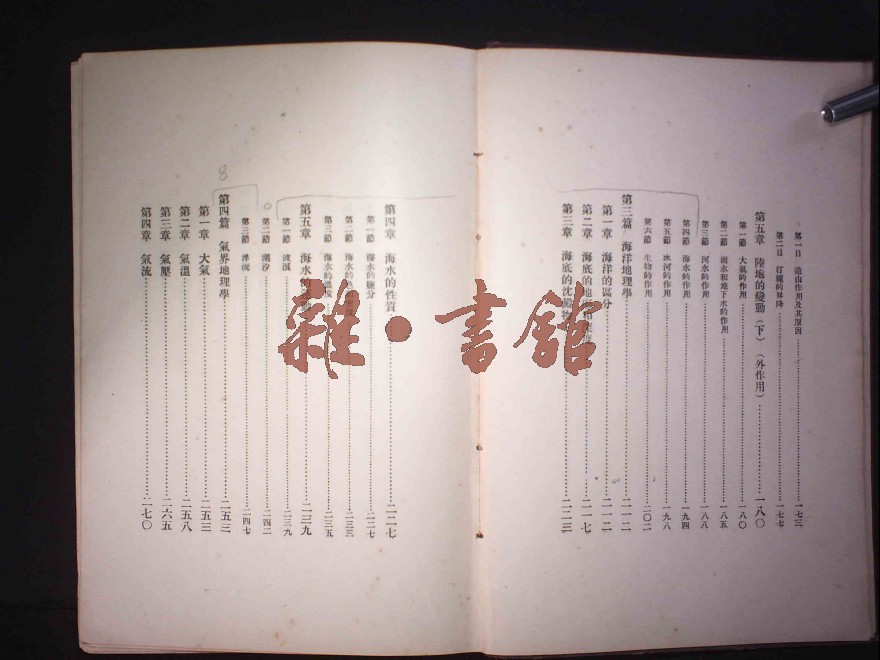 第一目 造山作用及其原因……一七三
第二目 汀線的昇降……一七七
第五章 陸地的變動(下)(外作用)……一八〇
第一節 大氣的作用……一八〇
第二節 雨水和地下水的作用……一八五
第三節 河水的作用……一八八
第四節 海水的作用……一九四
第五節 冰河的作用……一九八
第六節 生物的作用……二〇二
第三篇 海洋地理學……二一二
第一章 海洋的區分……二一二
第二章 海底的地……二一七
第三章 海底的沈澱物……二二三
第四章 海水的性質……二二七
第一節 海水的鹽分……二二七
第二節 海水的……二三三
第三節 海水的溫度……二三五
第五章 海水的……二三九
第一節 波浪……二三九
第二節 潮汐……二四二
第三節 洋流……二四七
第四篇 氣界地理學……二五三
第一章 大氣……二五三
第二章 氣溫……二五八
第三章 氣壓……二六五
第四章 氣流……二七〇
8
雜·書館